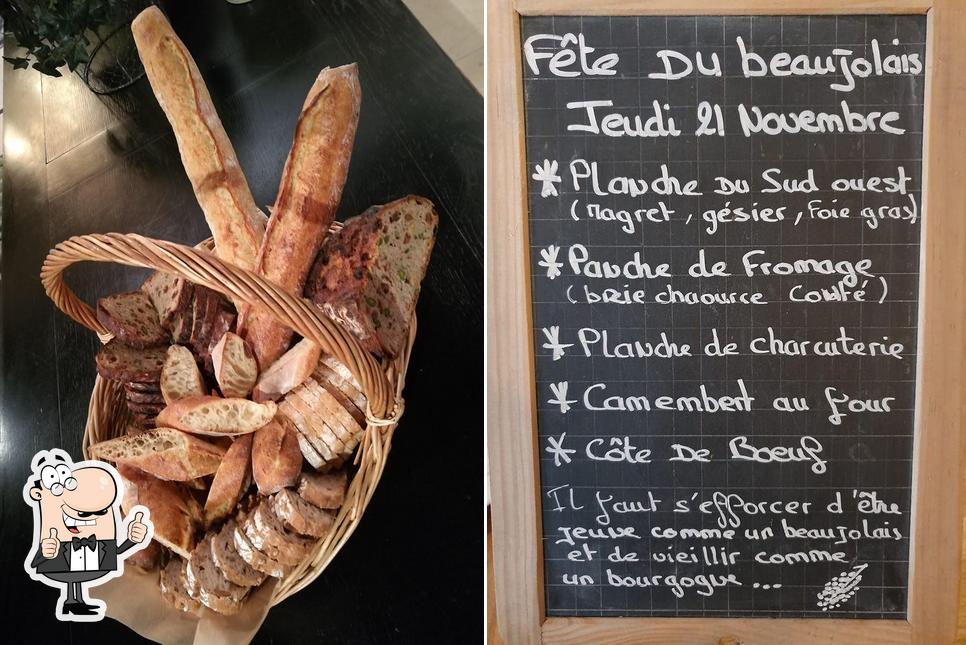 Fête Du beaujolais
Jeudi 21 Novembre
* Planche Du Sud ouest
(Magret, gésier, Foie gras)
* Panche de Fromage
(brie chaource Comté)
* Planche de charcuterie
* Camembert au four
* Côte De Boeuf
Il faut s'efforcer d'être
jeune comme un beaujolais
et de vieillir comme
un bourgogne ...